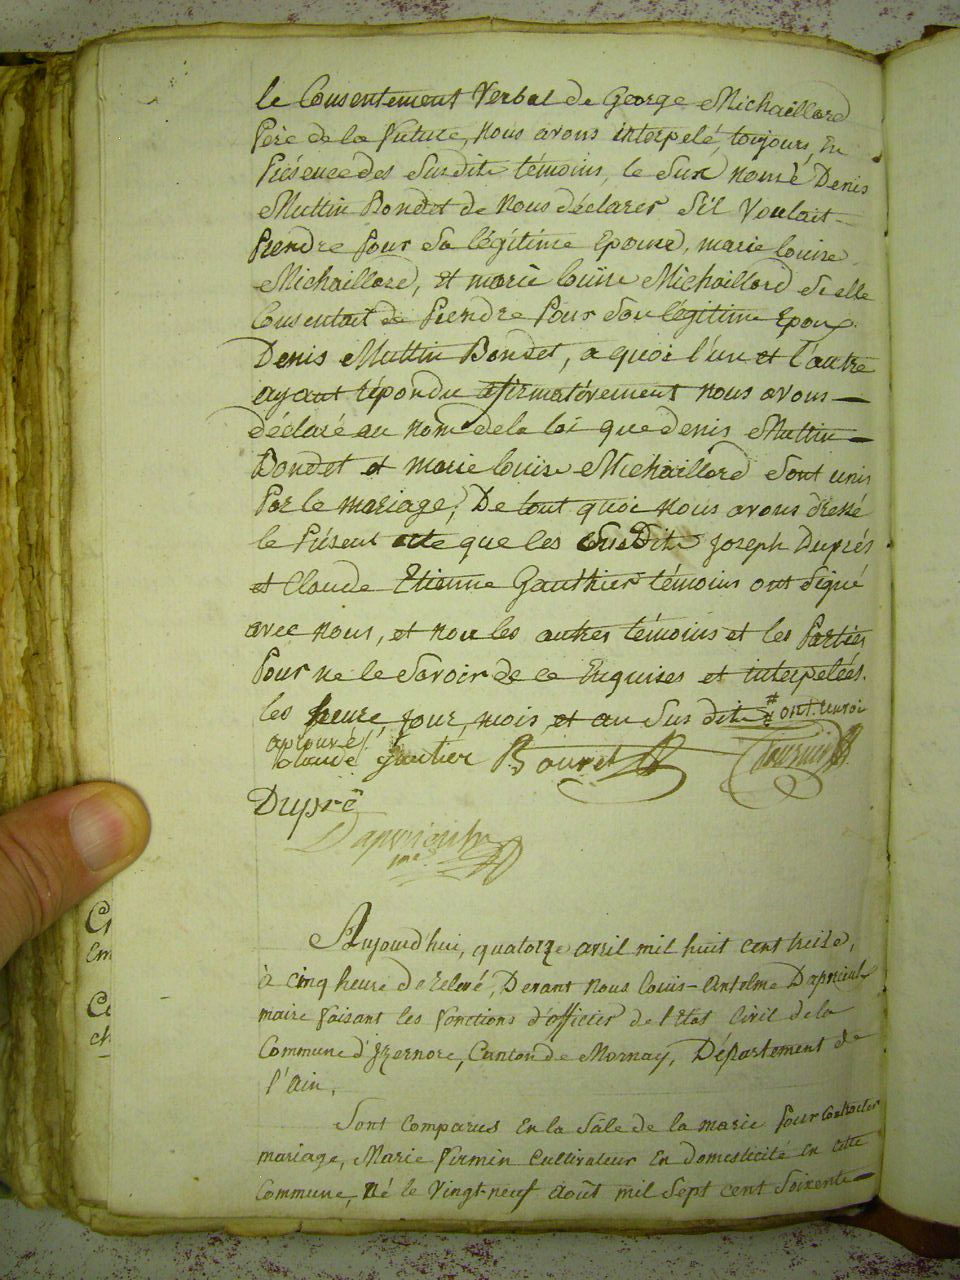 le Consentement Verbal de George Michaillard
Père de la Future, Nous avons interpelé, toujours, En
Présence des Susdits témoins, le Sus nomé Denis
Muttin Bondet de Nous déclarer S'il Voulait
Prendre Pour Sa légitime Epouse, marie louise
Michaillard, et marie louise Michaillard Si elle
Consentait de Prendre Pour Son légitime Epoux
Denis Muttin Bondet, a quoi l'un et l'autre
ayant répondu afirmativement Nous avons
déclaré au Nom de la loi que denis Muttin
Bondet et marie louise Michaillard Sont unis
Par le mariage; De tout quoi Nous avons dressé
le Présent acte que les Susdits Joseph Duprés
et Claude Etienne Gauthier témoins ont Signé
avec Nous, et Non les autres témoins et les Parties
Pour ne le Savoir de ce Enquises et interpelées.
les heure, Jour, mois, et an Sus dits # ont
aprouvé
Claude gautier Bouvet
Dupré
Dapvrieulx
me
Aujourd'hui, quatorze avril mil huit cent treize,
à cinq heure de relevé, Devant Nous louis-Antelme Dapvrieulx
maire Faisant les Fonctions d'officier de l'Etat Civil de la
Commune d'Izernore, Canton de Mornay, Département de
l'Ain,
Sont Comparus En la Sale de la marie Pour Contracter
mariage, Marie Firmin Cultivateur En domesticité En cette
Commune, Né le Vingt-neuf août mil Sept cent Soixente